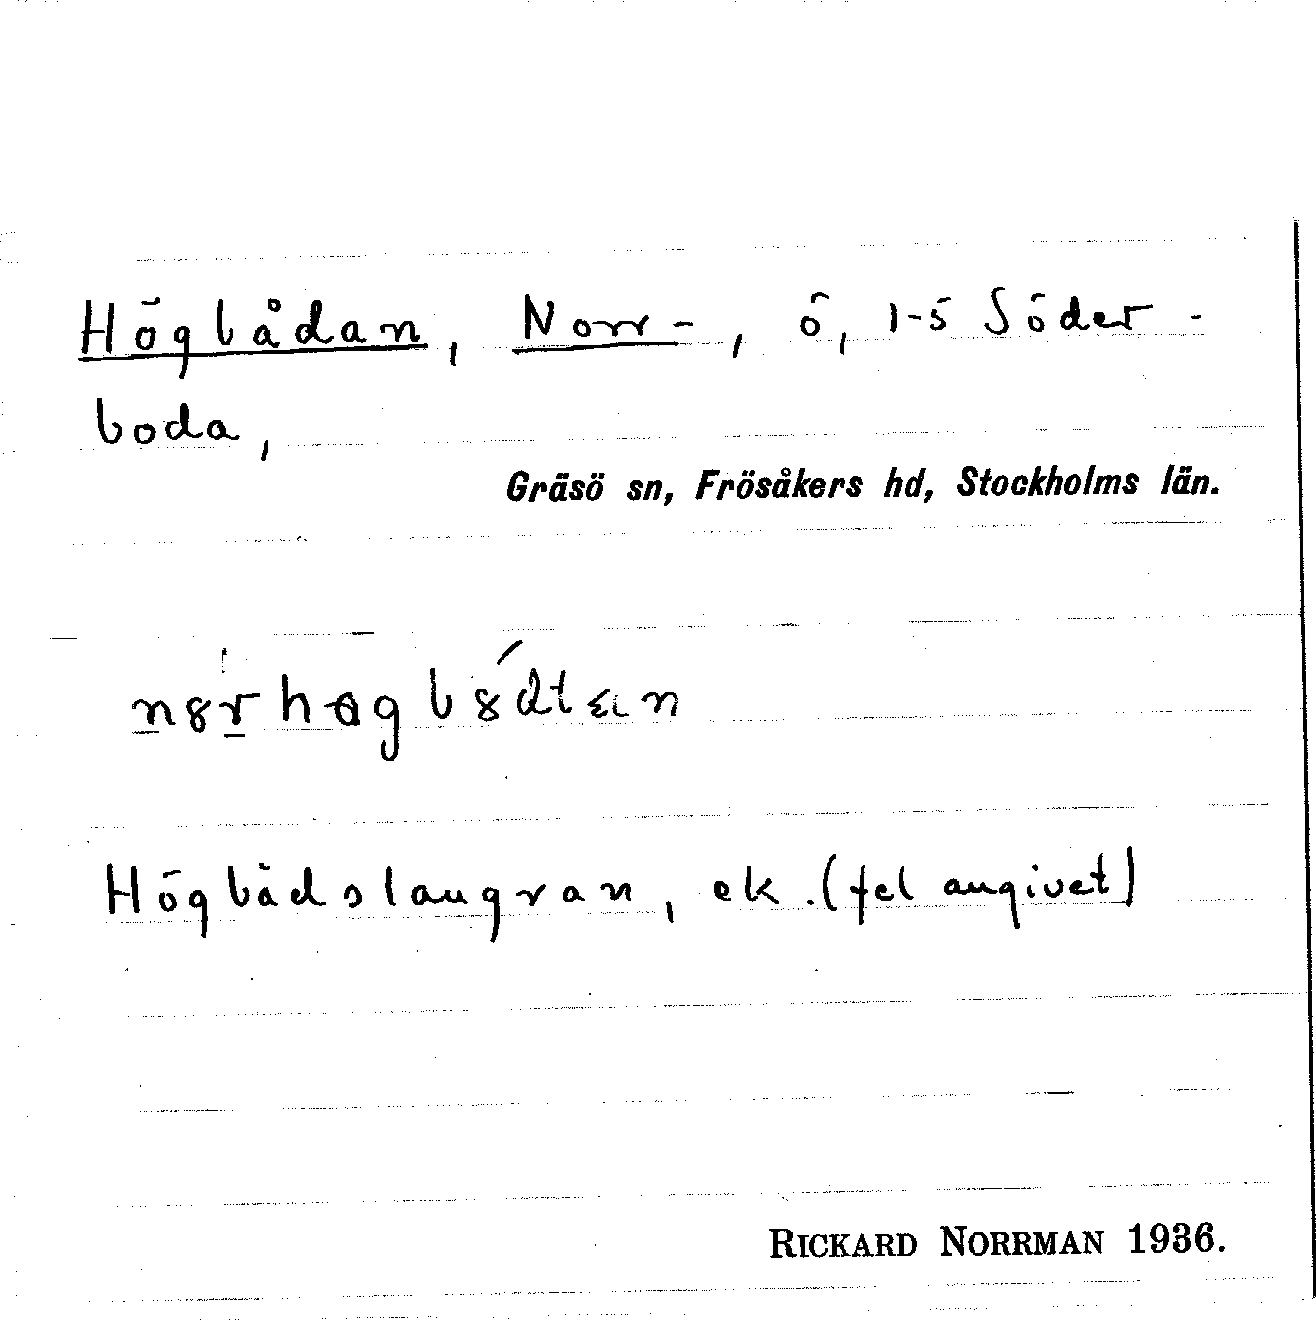 Högbådan, Norr-, ö, 1-5 Söder-
boda,
Gräsö sn, Frösåkers hd, Stockholms län.
Högbådslangran, ek. (fel angivet)
RICKARD NORRMAN 1936.